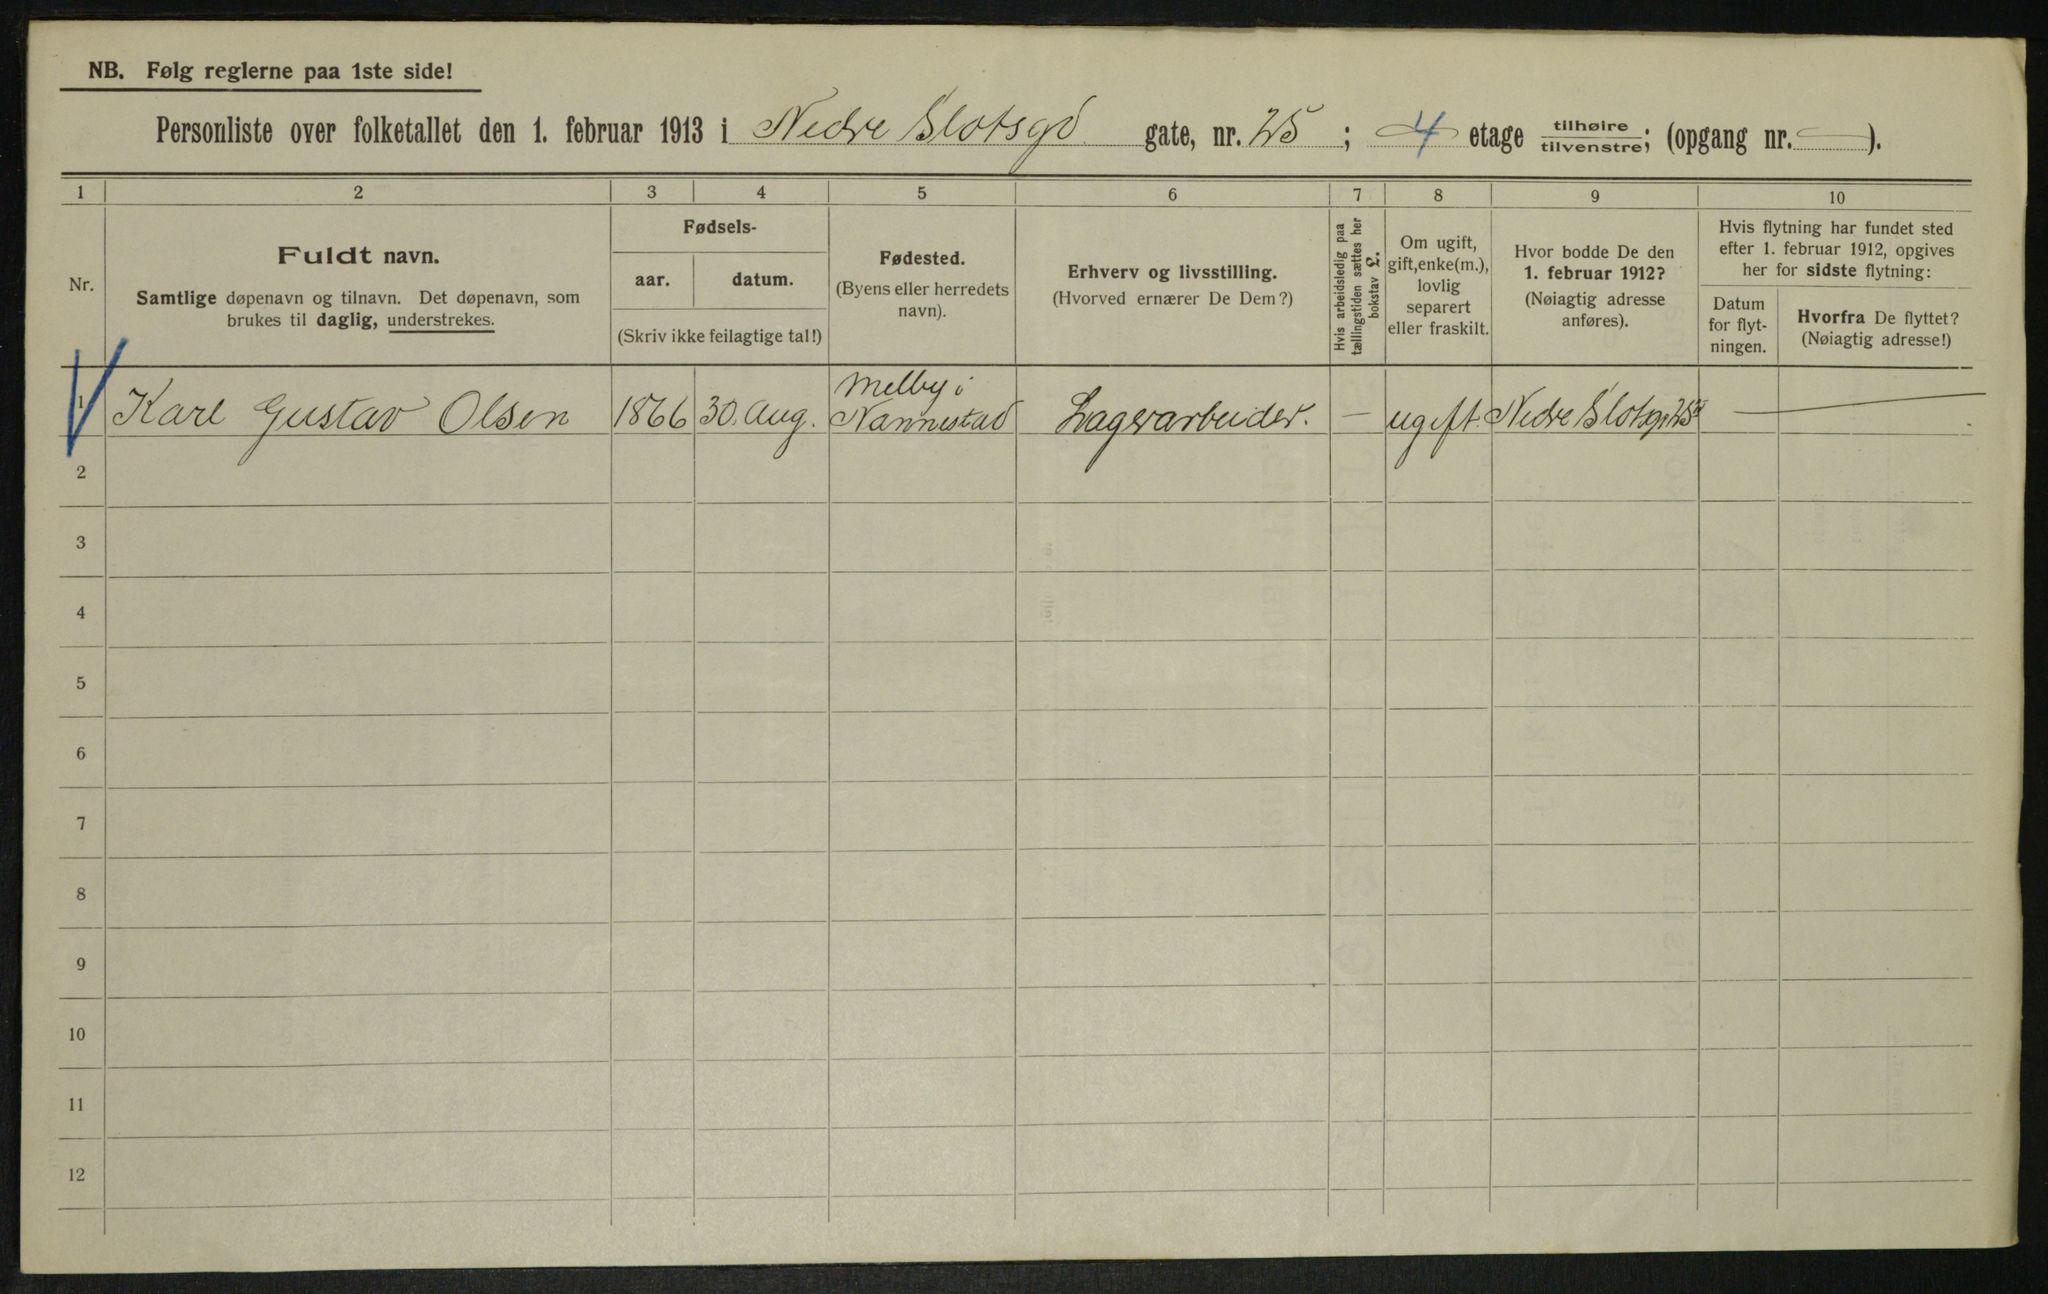 NB. Følg reglerne paa 1ste side!
Personliste over folketallet den 1. februar 1913 i Nedre Slotsgd gate, nr. 25 ; 4 etage tilhøire tilvenstre; (opgang nr. — ).
1 2 3 4 5 6 7 8 9 10
Nr.
Fuldt navn.
Samtlige døpenavn og tilnavn. Det døpenavn, som
brukes til daglig, understrekes.
Fødsels-
aar. datum.
(Skriv ikke feilagtige tal!)
Fødested.
(Byens eller herredets
navn).
Erhverv og livsstilling.
(Hvorved ernærer De Dem?)
Hvis arbeidsledig paa
tællingstiden sættes her
bokstav £.
Om ugift,
gift, enke(m.),
lovlig
separert
eller fraskilt.
Hvor bodde De den
1. februar 1912?
(Nøiagtig adresse
anføres).
Hvis flytning har fundet sted
efter 1. februar 1912, opgives
her for sidste flytning:
Datum
for flyt-
ningen.
Hvorfra De flyttet?
(Nøiagtig adresse!)
1 Karl Gustav Olsen 1866 30. Aug. Melby i Nannestad Lagerarbeider. — ugift. Nedre Slotsg. 25 —
2
3
4
5
6
7
8
9
10
11
12